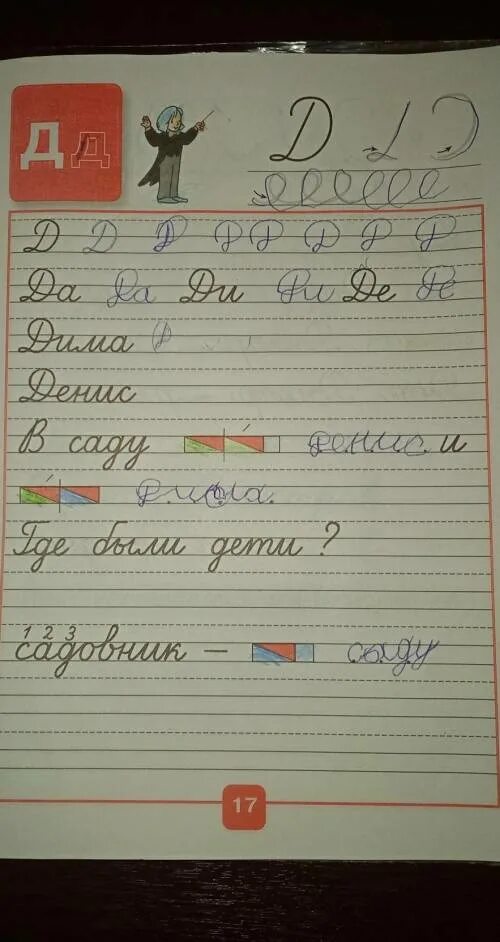 Д Д
Д
Д Д Д Д Д Д Д Д
Да Да Ди Ди Де Де
Дима Д
Денис
В саду Денис и
Где были дети?
1 2 3
садовник – сыду
17